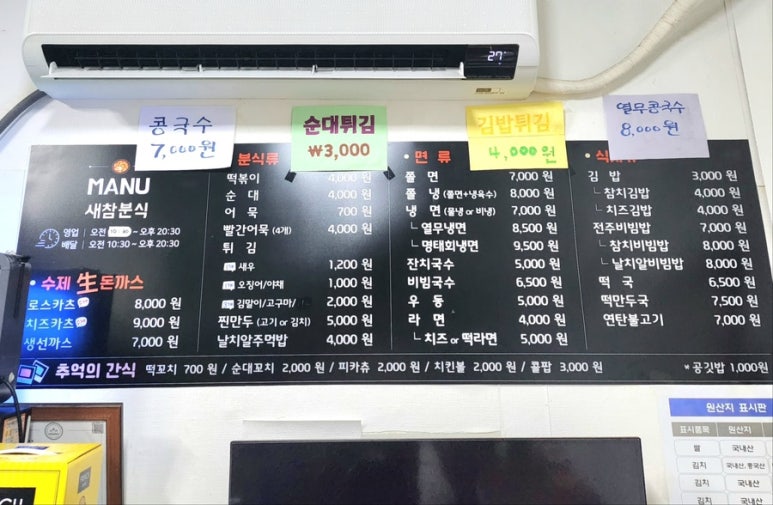 27
콩국수
7,000원
순대튀김
₩3,000
김밥튀김
4,000원
열무콩국수
8,000원
MANU
새참분식
영업 오전 ~ 오후 20:30
배달 오전 10:30 ~ 오후 20:30
수제 生돈까스
로스카츠 8,000 원
치즈카츠 9,000 원
생선까스 7,000 원
분식류
떡볶이 4,000 원
순 대 4,000 원
어 묵 700 원
빨간어묵 (4개) 4,000 원
튀 김
새우 1,200 원
오징어/야채 1,000 원
김말이/고구마/ 2,000 원
찐만두 (고기 or 김치) 5,000 원
날치알주먹밥 4,000 원
면 류
쫄 면 7,000 원
쫄 냉 (쫄면+냉육수) 8,000 원
냉 면 (물냉 or 비냉) 7,000 원
└ 열무냉면 8,500 원
└ 명태회냉면 9,500 원
잔치국수 5,000 원
비빔국수 6,500 원
우 동 5,000 원
라 면 4,000 원
└ 치즈 or 떡라면 5,000 원
김 밥 3,000 원
└ 참치김밥 4,000 원
└ 치즈김밥 4,000 원
전주비빔밥 7,000 원
└ 참치비빔밥 8,000 원
└ 날치알비빔밥 8,000 원
떡 국 6,500 원
떡만두국 7,500 원
연탄불고기 7,000 원
추억의 간식 떡꼬치 700 원 / 순대꼬치 2,000 원 / 피카츄 2,000 원 / 치킨볼 2,000 원 / 콜팝 3,000 원 * 공깃밥 1,000원
원산지 표시판
표시품목 원산지
쌀 국내산
김치 국내산, 중국산
김치 국내산
김치 국내산